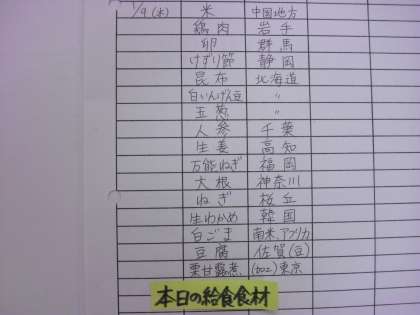 1/9(木) 米 中国地方
鶏肉 岩手
卵 群馬
けずり節 静岡
昆布 北海道
白いんげん豆 〃
玉葱 〃
人参 千葉
生姜 高知
万能ねぎ 福岡
大根 神奈川
ねぎ 桜丘
生わかめ 韓国
白ごま 南米、アフリカ
豆腐 佐賀(豆)
栗甘露煮 (加工)東京
本日の給食食材